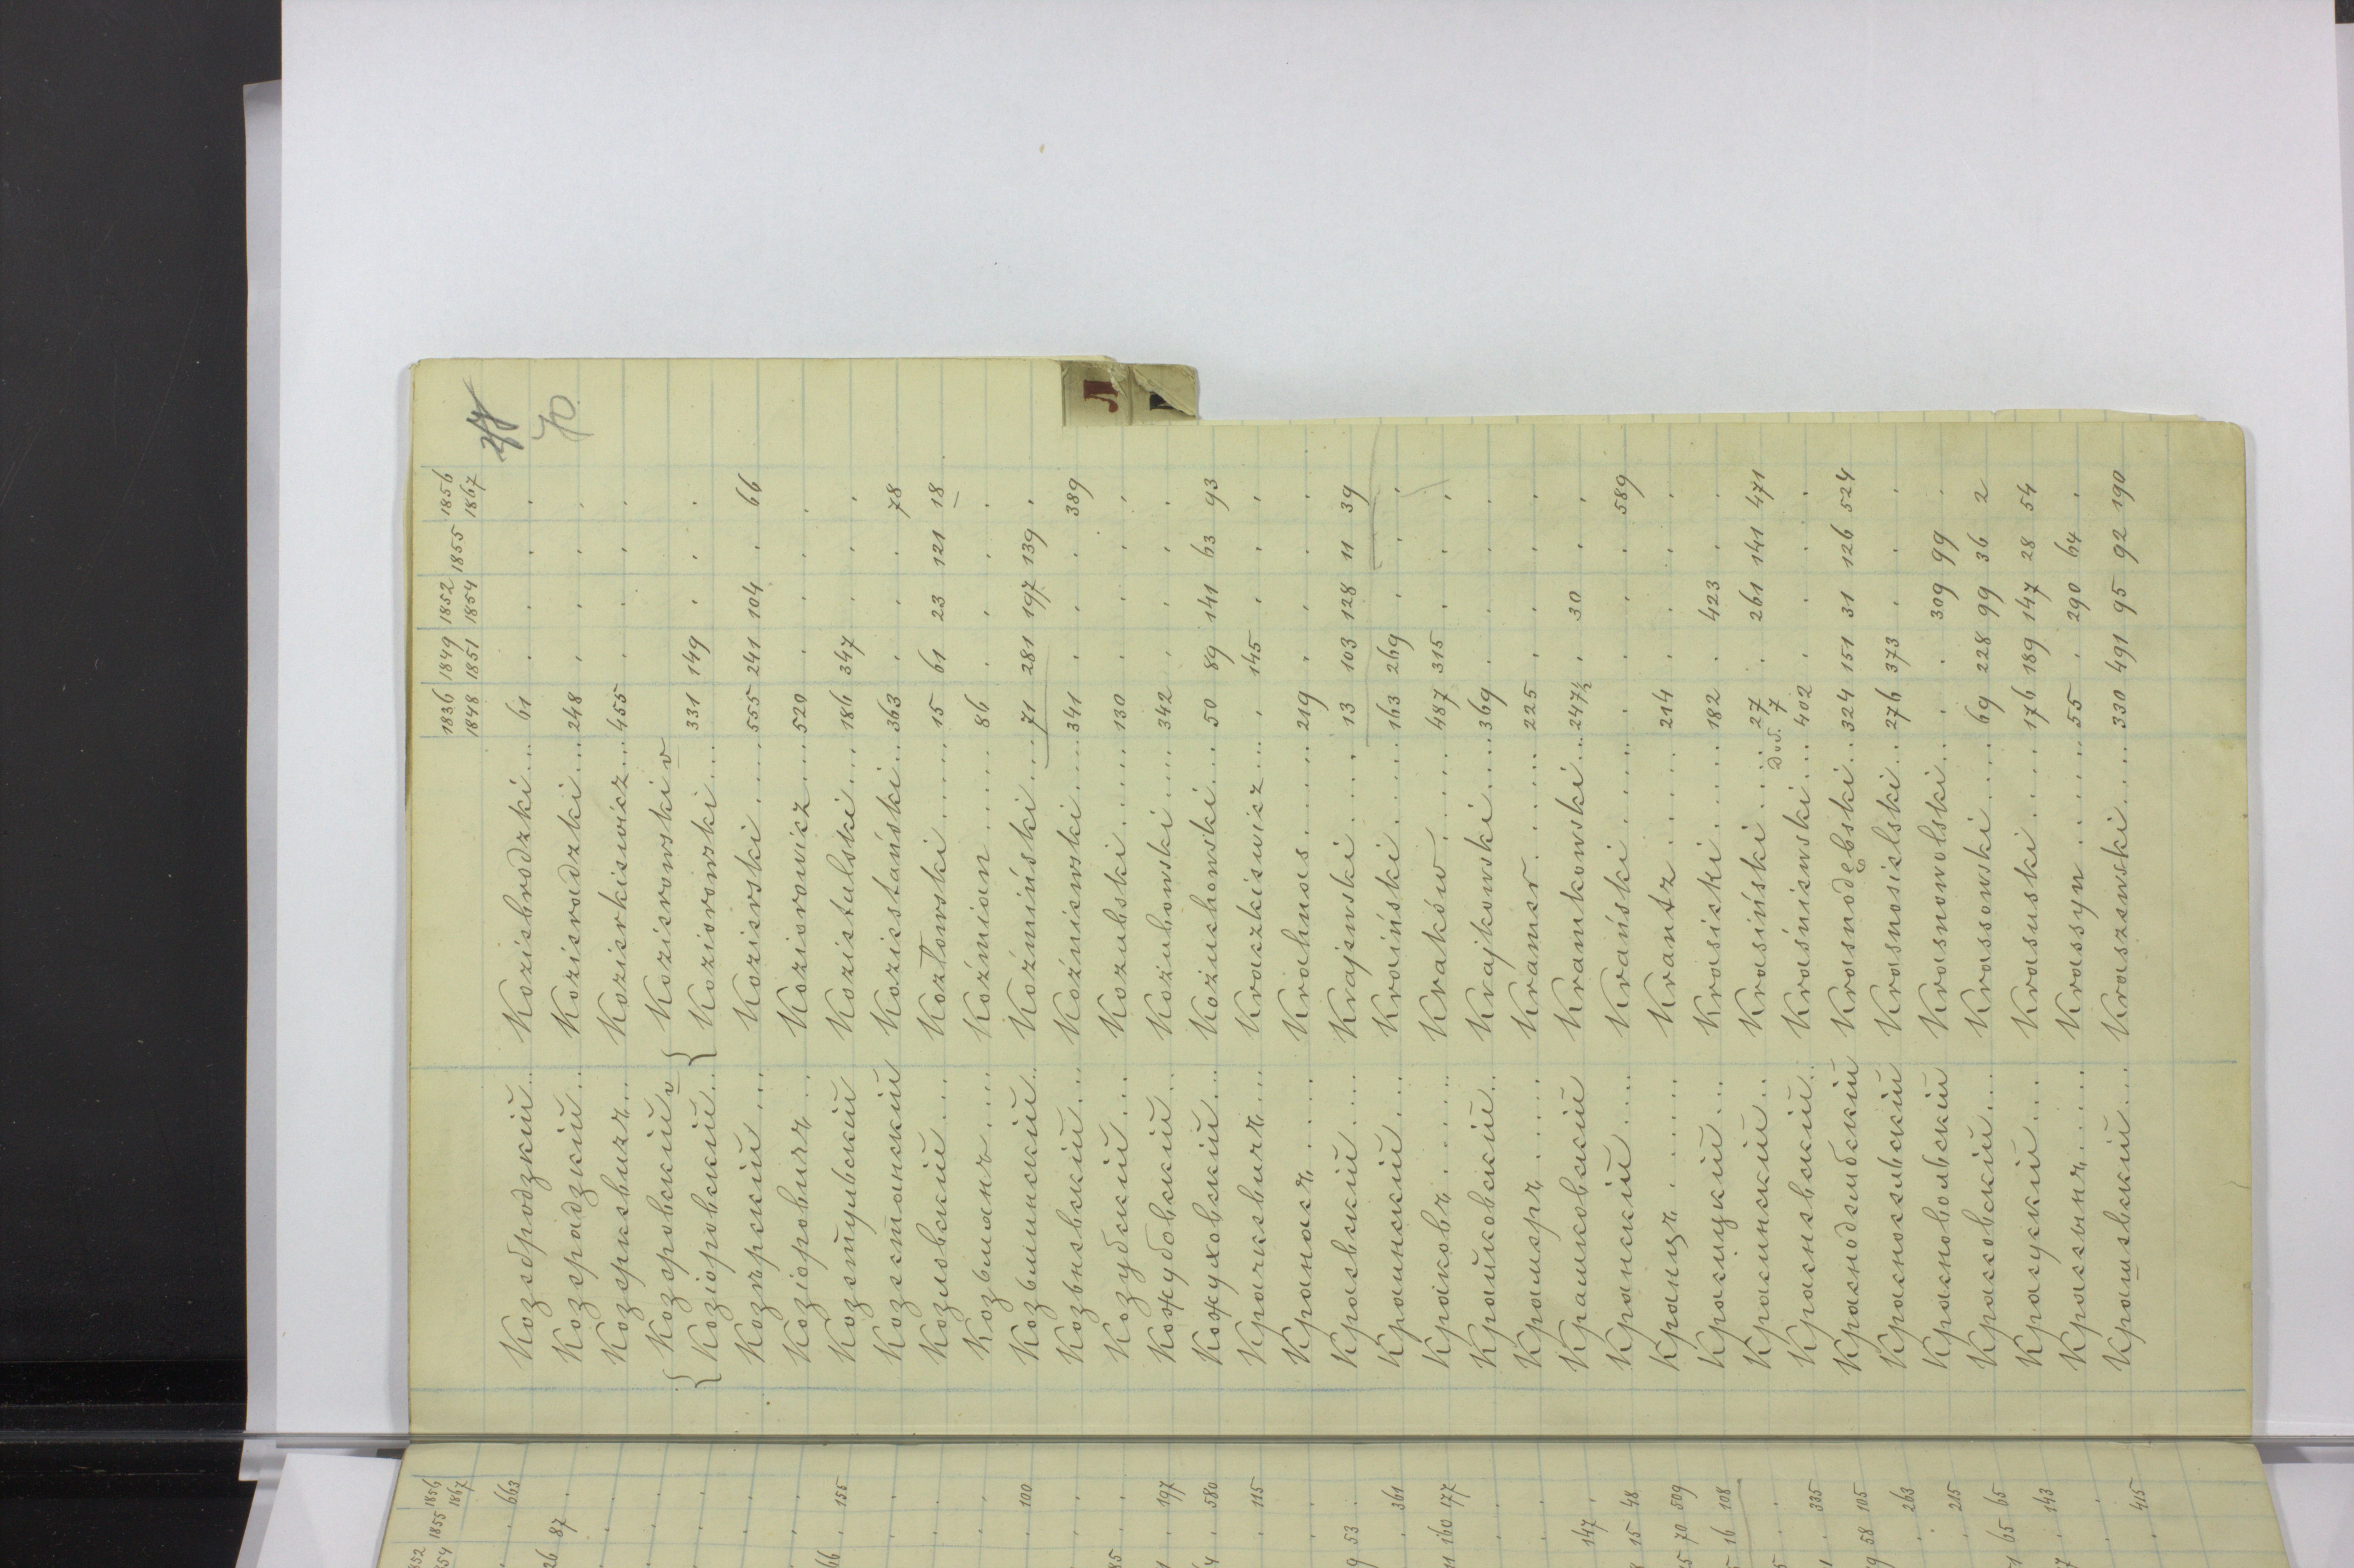 1836 1849 1852 1855 1856
1848 1851 1854 1867
70
Козебродзкій.. Koziebrodzki... 61 . . . .
Козерадзкій... Kozieradzki... 248 . . . .
Козеркевичъ... Kozierkiewicz... 455 . . . .
{ Козеровскій { Kozierowski
Козіоровскій... Koziorowski... 331 149 . . .
Козѣрскій .... Kozierski ..... 555 241 104 . 66
Козіоровичъ ... Koziorowicz .... 520 . . . .
Козетульскій Kozietulski .... 186 347 . . .
Козестанскій Koziestański... 363 . . . 78
Козловскій .... Kozłowski ...... 15 61 23 121 18
Козьмянъ ..... Koźmian ...... 86 . . . .
Козьминскій.. Koźmiński .... 71 281 197 139 .
Козьневскій.... Koźniewski ..... 341 . . . 389
Козубскій .... Kozubski ...... 130 . . . .
Кожубовскій... Kożubowski .... 342 . . . .
Кожуховскій... Kożuchowski .... 50 89 141 63 93
Крачкевичъ.... Kraczkiewicz .... . 145 . . .
Кранасъ...... Krahnas ...... 219 . . . .
Краевскій ..... Krajewski ..... 13 103 128 11 39
Краинскій .... Kraiński ...... 163 269 . . .
Краковъ ...... Kraków ...... 487 315 . . .
Крайковскій.. Krajkowski .... 369 . . . .
Крамеръ ..... Kramer ...... 225 . . . .
Крамковскій Kramkowski .. 247½ . 30 . .
Кранскій ..... Krański ..... . . . . 589
Кранцъ ...... Krantz ...... 214 . . . .
Красицкій .... Krasicki ..... 182 . 423 . .
Красинскій ... Krasiński .... 27 . 261 141 471
dod. 7
Красневскій.. Kraśniewski .. 402 . . . .
Красноdембскій Krasnodębski .. 324 151 31 126 524
Красносельскій Krasnosielski .. 276 373 . . .
Красновольскій Krasnowolski .. . . 309 99 .
Красовскій .... Krassowski .... 69 228 99 36 2
Красускій .... Krasuski ...... 176 189 147 28 54
Крассынъ ...... Krassyn ...... 55 . 290 64 .
Крашевскій .... Kraszewski .... 330 491 95 92 190
Л
1855 1856
1867
. 663
87 .
. 155
. 100
. 197
. 580
. 115
53 .
. 361
160 177
147 .
15 48
70 509
16 108
. 335
58 105
. 263
. 215
65 65
. 143
. 415